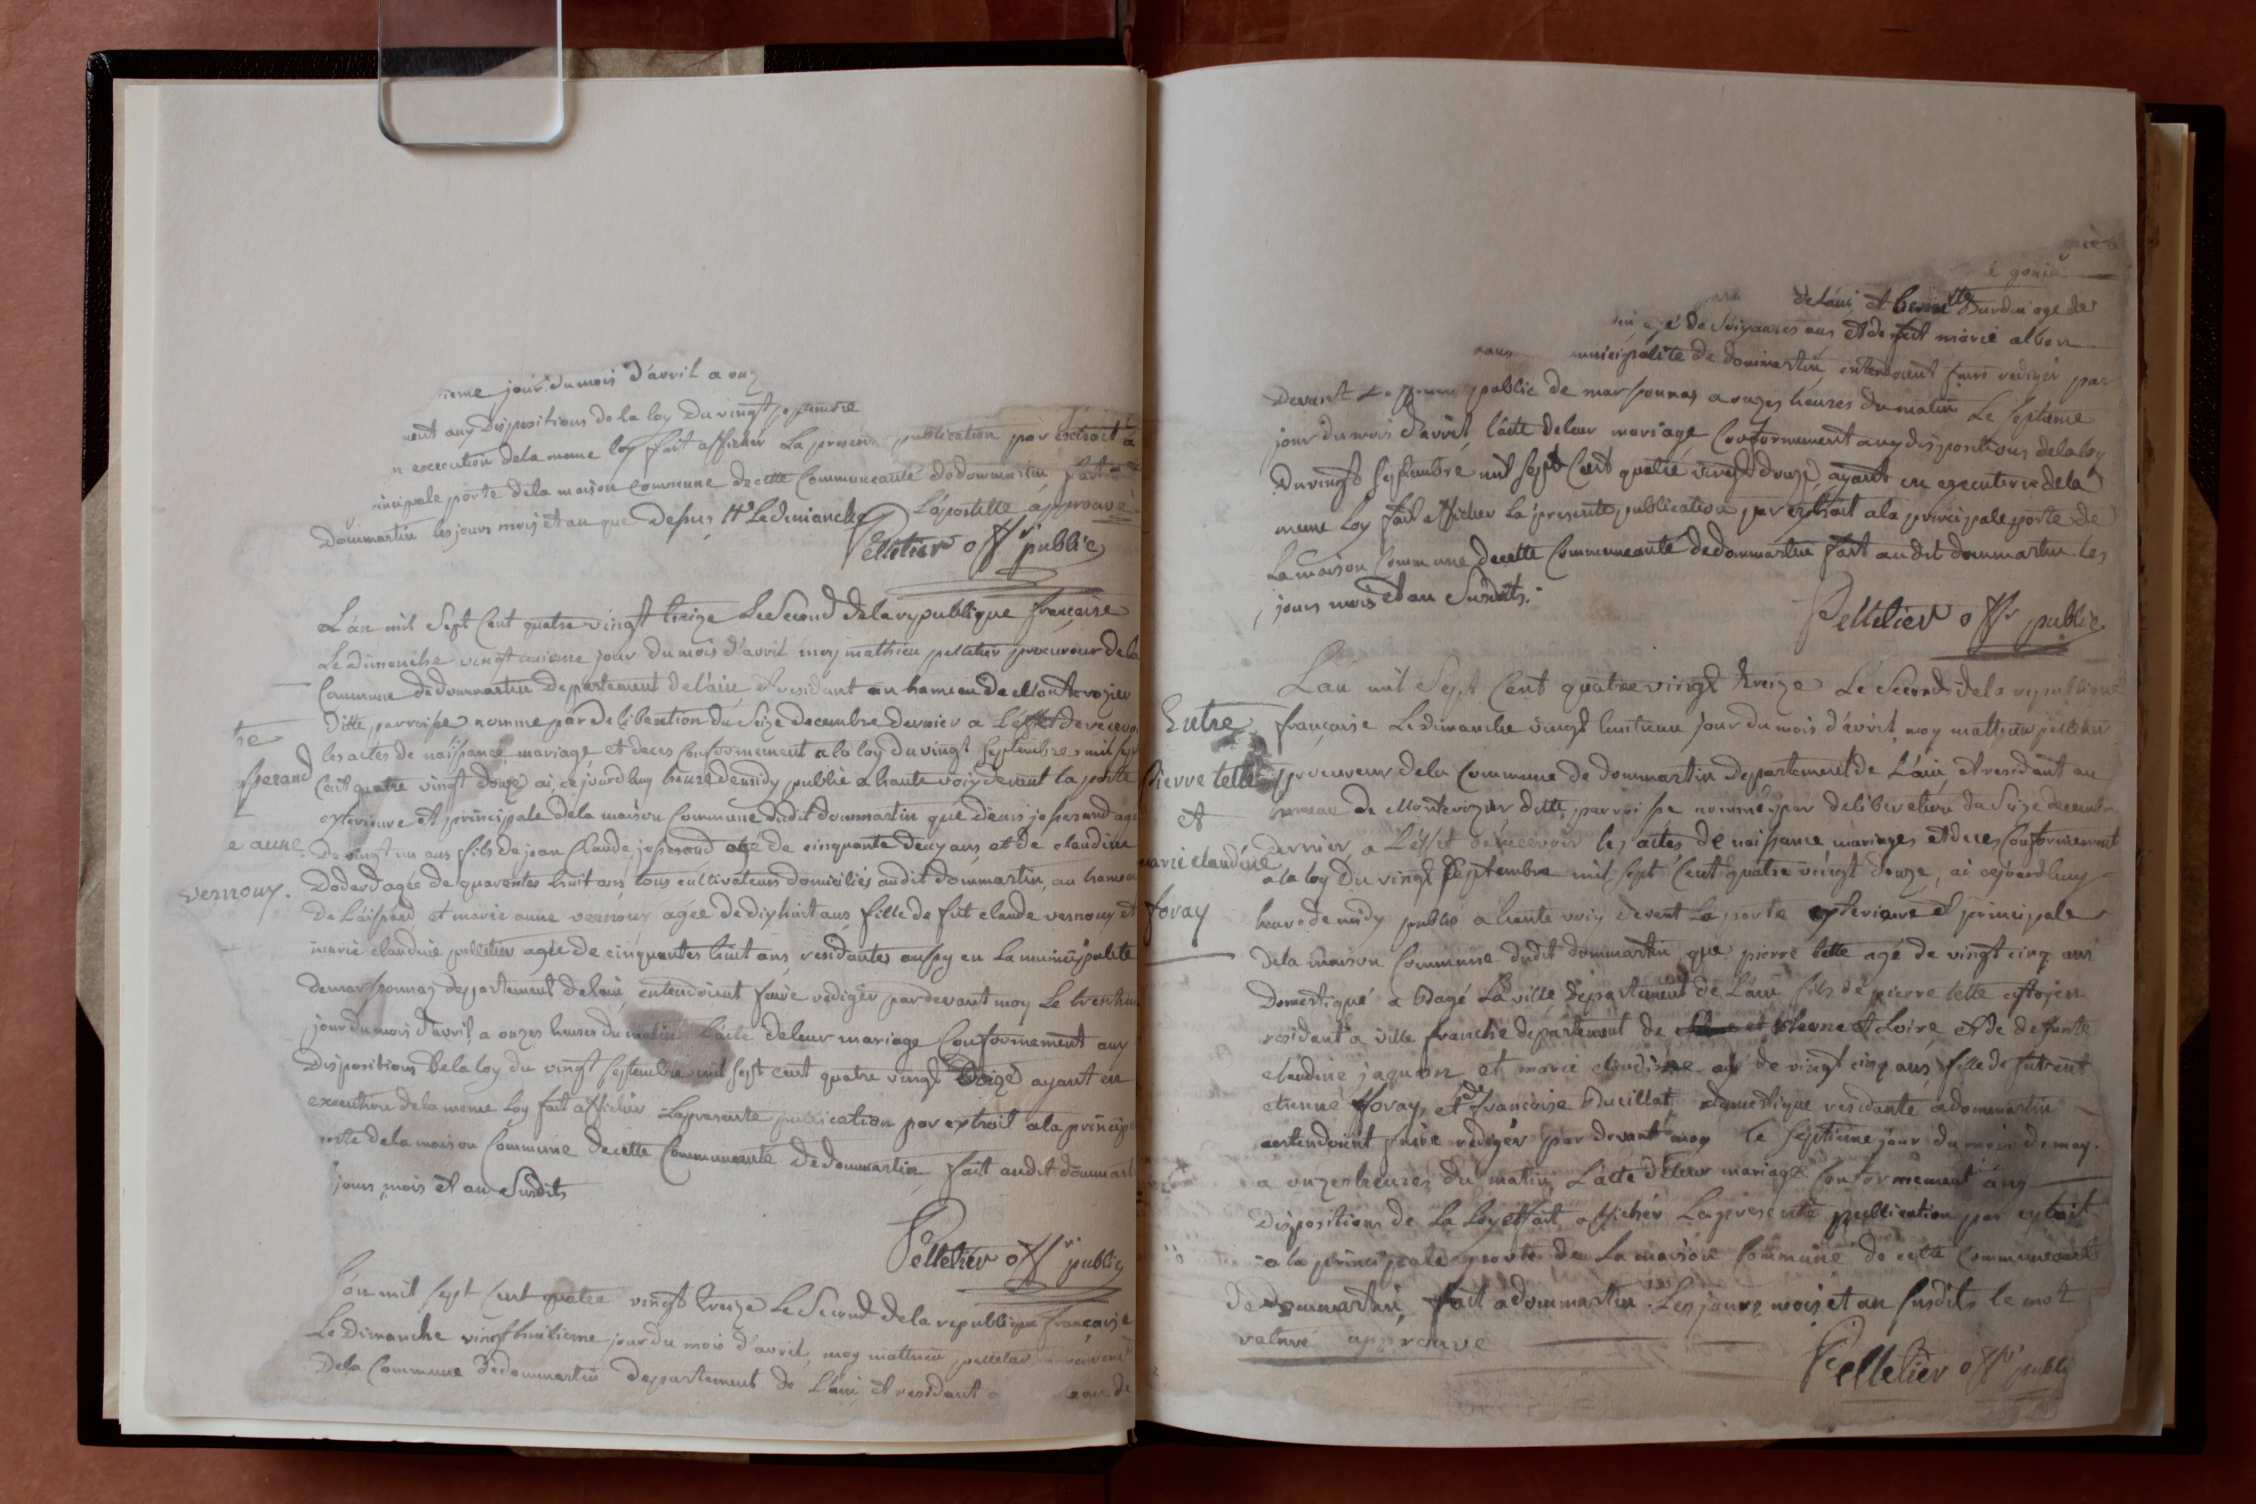 ieme jour du mois d'avril a onz
ment aux dispositions de la loy du vingt septembre
n execution de la meme loy fait afficher la presente publication par extrait a
incipale porte de la maison commune de cette Communeauté de dommartin fait a
Dommartin les jours mois et an que dessus Le dimanche L'apostille approuvé
Pelletier offr public
L'an mil Sept Cent quatre vingt treize Le Second de la republique francaise
Le dimanche vingt unieme jour du mois d'avril moy mathieu pelletier procureur de la
Commune de dommartin departement de l'ain et residant au hameau de Montcrozier
ditte parroisse nommé par deliberation du Seize decembre dernier a L'effet de recevoi
les actes de naissance mariage et deces conformement a la loy du vingt Septembre mil sept
Cent quatre vingt douze ai cejourdhuy heure de midy publié a haute voix devant la porte
exterieure et principale de la maison Commune dudit dommartin que denis joserand agé
De vingt un ans fils de jean Claude joserand agé de cinquante deux ans et de claudine
Dodard agée de quarentes huit ans tous cultivateurs domiciliés audit dommartin, au hameau
De et marie anne vernoux agée de dix huit ans fille de fut claude vernoux et
marie claudine pelletier agée de cinquantes huit ans residantes aussy en La municipalité
de marsonnaz departement de lain entendoient faire rediger pardevant moy Le trentieme
jour du mois d'avril a onzes heures du matin L'acte de leur mariage Conformement aux
Dispositions de la loy du vingt septembre mil sept cent quatre vingt douze ayant en
execution de la meme loy fait afficher La presente publication par extrait a la principa
porte de la maison Commune de cette Communeauté de dommartin fait audit dommart
jours mois et an Susdits
Pelletier offr public
L'an mil sept Cent quatre vingt treize Le Second de la republique francaise
Le dimanche vingt huitieme jour du mois d'avril, moy mathieu pelletier
De la Commune de dommartin departement de L'ain et residant
te
sserand
e anne
vernoux.
de L'ain, et Burdin agé de
agé de Soixantes ans et de fut marie albon
municipalité de dommartin entendoient faire rediger par
Devant L'officier public de marsonnas a onzes heures du matin Le septieme
jour du mois d'avril l'acte de leur mariage Conformement aux dispositions de la loy
Du vingt septembre mil sept Cent quatre vingt douze, ayant en execution de la
meme loy fait afficher La presente publication par extrait a la principale porte de
La maison Commune de cette Communeauté de dommartin fait au dit dommartin les
jours mois et an Susdits.
Pelletier offr public
L'an mil Sept Cent quatre vingt treize Le Second de la republique
francaise Le dimanche vingt huitieme jour du mois d'avril, moy mathieu pelletier
procureur de la Commune de dommartin departement de L'ain, et residant au
hameau de Montcrozier ditte parroisse nommé par deliberation du Seize decembre
dernier a L'effet de recevoir les actes de naissance mariages et deces Conformement
a la loy Du vingt Septembre mil sept Cent quatre vingt douze, ai cejourdhuy
heure de midy publié a haute voix devant La porte exterieure et principale
De la maison Commune dudit dommartin que pierre tette agé de vingt cinq ans
Domestique a Bagé La ville departement de L'ain fils de pierre tette citoyen
residant a ville franche departement de Rhone et Loire et de defunte
claudine jaquon et marie claudine agé de vingt cinq ans fille de fut
etienne foray, et de francoise Ducillat domestique residante a dommartin
entendoient faire rediger par devant moy le septieme jour du mois de may.
a onzes heures du matin L'acte de leur mariage Conformement aux
Dispositions de La Loy et fait afficher La presente publication par extrait
a la principale porte de La maison Commune de cette Communeauté
de dommartin, fait a dommartin Les jours mois et an susdits le mot
approuvé
Pelletier offr publi
Entre
Pierre tette
et
marie claudine
foray